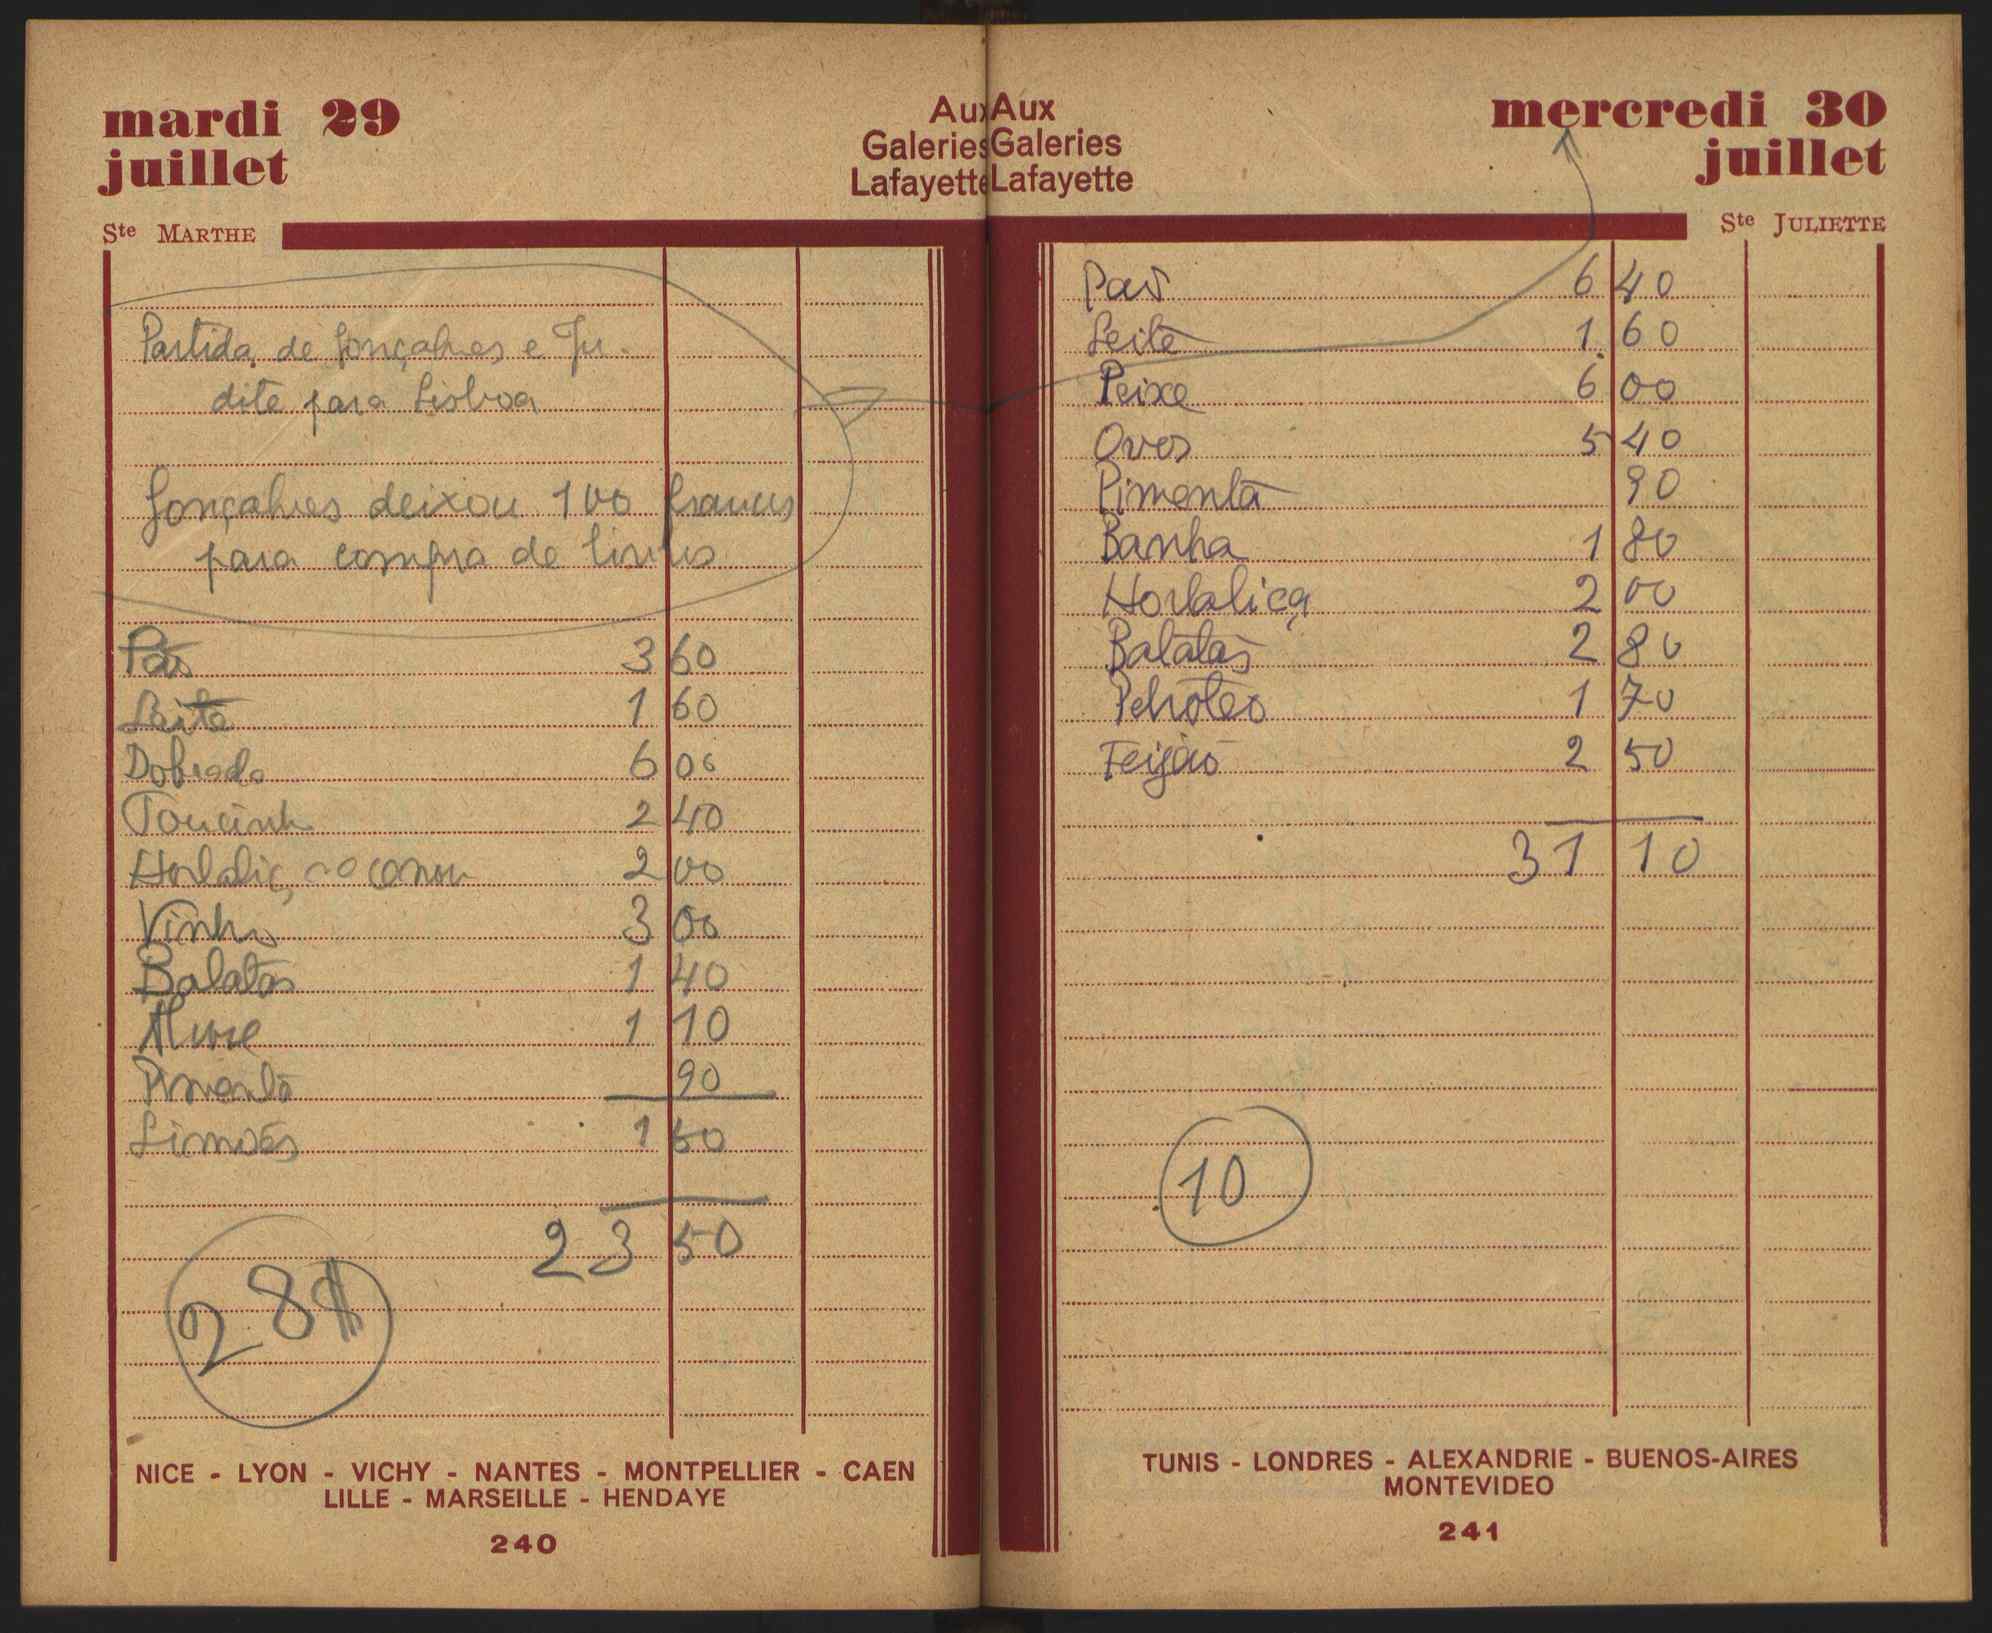 mardi 29
juillet
Aux
Galeries
Lafayette
Ste MARTHE
Partida de Gonçalves e Ju-
dite para Lisboa
Gonçalves deixou 100 francos
para compra de livros
Pão 3 60
Leite 1 60
Dobrada 6 00
Toucinho 2 40
Hortaliça 2 00
Vinho 3 00
Batatas 1 40
1 10
Pimenta 90
Limões 1 50
23 50
28$
NICE - LYON - VICHY - NANTES - MONTPELLIER - CAEN
LILLE - MARSEILLE - HENDAYE
240
Aux
Galeries
Lafayette
mercredi 30
juillet
Ste JULIETTE
Pão 6 40
Leite 1 60
Peixe 6 00
Ovos 5 40
Pimenta 90
Banha 1 80
Hortaliça 2 00
Batatas 2 80
Petroleo 1 70
Feijão 2 50
31 10
10
TUNIS - LONDRES - ALEXANDRIE - BUENOS-AIRES
MONTEVIDEO
241